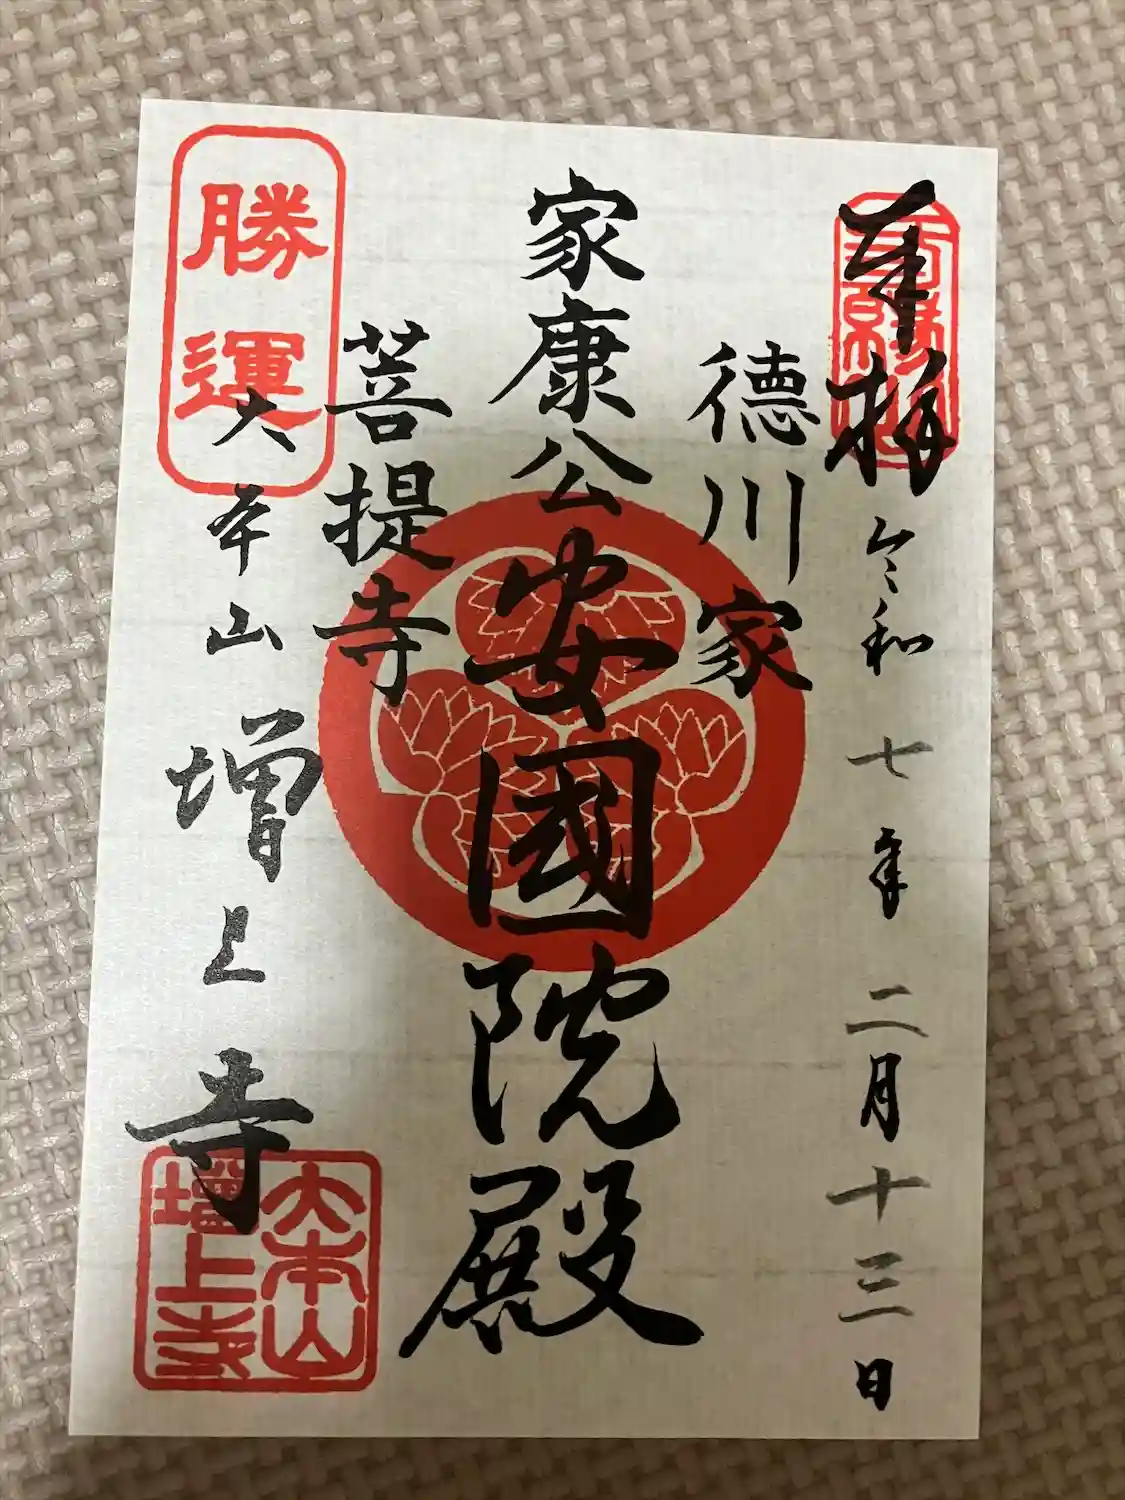 奉拝
令和七年二月十三日
徳川家
家康公安國院殿
菩提寺
勝運
大本山増上寺
大本山
増上寺